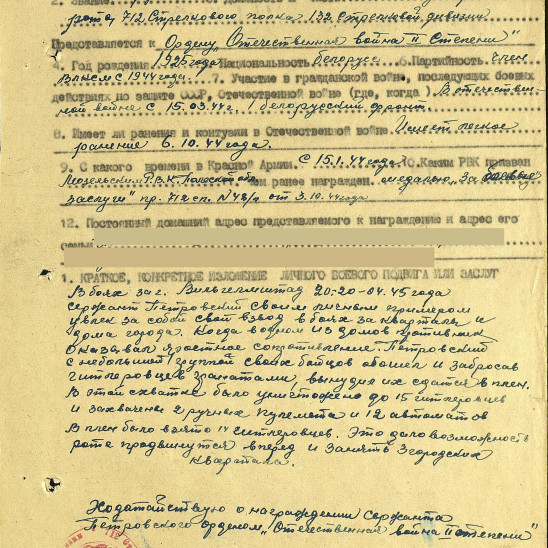 2. Звание
рота 712 Стрелкового полка 132 Стрелковой дивизии
Представляется к Ордену „Отечественная война II Степени"
4. Год рождения 1925 года Национальность белорус 6. Партийность член
ВЛКСМ с 1944 года. 7. Участие в гражданской войне, последующих боевых
действиях по защите СССР, Отечественной войне (где, когда) В отечествен-
ной войне с 15.03.44г. 1 белорусский фронт
8. Имеет ли ранения и контузии в Отечественной войне Имеет легкое
ранение 6.10.44 года.
9. С какого времени в Красной Армии. с 15.1.44 года 10. Каким РВК призван
РВК, Полесской обл. ем ранее награжден. медалью „За боевые
заслуги" пр. 712 сп. №48/н от 3.10.44 года
12. Постоянный домашний адрес представляемого к награждению и адрес его
семьи
1. КРАТКОЕ, КОНКРЕТНОЕ ИЗЛОЖЕНИЕ ЛИЧНОГО БОЕВОГО ПОДВИГА ИЛИ ЗАСЛУГ
В боях за г. Вильгельмштад 20-04.45 года
сержант Петровский своим личным примером
увлек за собой свой взвод в боях за кварталы и
дома города. Когда в одном из домов противник
оказывал яростное сопротивление. Петровский
с небольшой группой своих бойцов обошел и забросав
гитлеровцев гранатами, вынудив их сдатся в плен.
В этой схватке было уничтожено до 15 гитлеровцев
и захвачены 2 ручных пулемета и 12 автоматов
В плен было взято 11 гитлеровцев. Это дало возможность
роте продвинутся вперед и занять 3 городских
квартала.
Ходатайствую о награждении Сержанта
Петровского орденом „Отечественная война II степени"